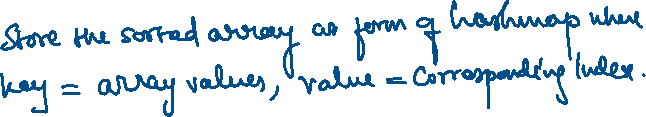 Store the sorted array as form of hashmap where
key = array values, value = Corresponding Index.